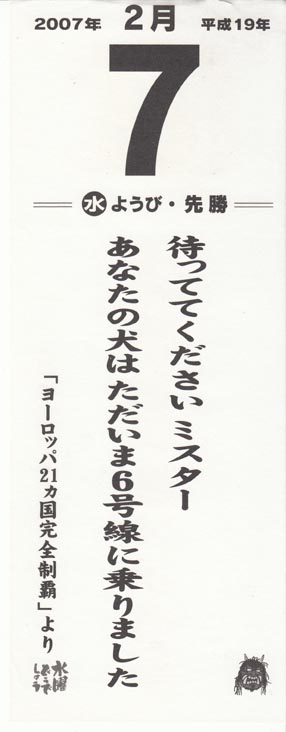 2007年 2月 平成19年
7
水 ようび・先勝
待っててください ミスター
あなたの犬は ただいま6号線に乗りました
「ヨーロッパ21ヵ国完全制覇」より
水曜
どうで
しょう